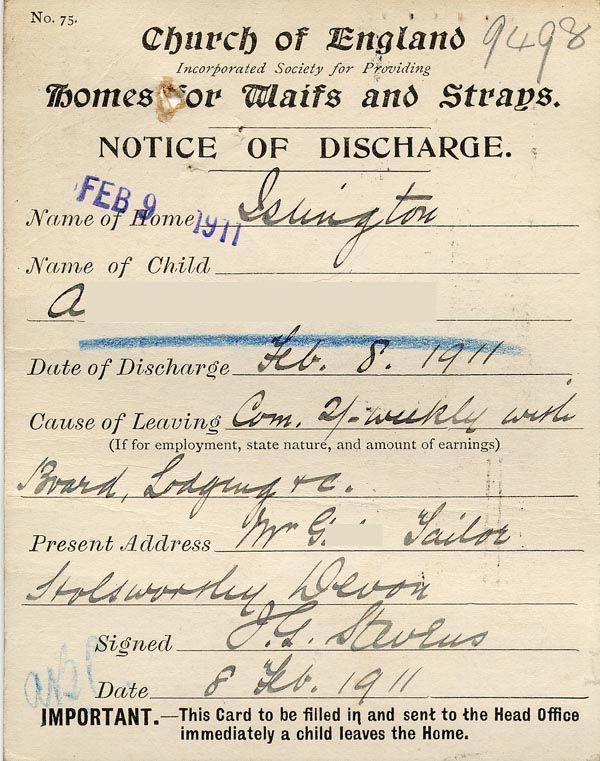 No. 75.
9498
Church of England
Incorporated Society for Providing
Homes for Waifs and Strays.
NOTICE OF DISCHARGE.
FEB 9 1911
Name of Home Islington
Name of Child
A
Date of Discharge Feb. 8. 1911
Cause of Leaving Com. 2/- weekly with
(If for employment, state nature, and amount of earnings)
Board, Lodging &c.
Present Address Mr G. Tailor
Holsworthy Devon
Signed J.G. Stevens
Date 8 Feb. 1911
IMPORTANT.—This Card to be filled in and sent to the Head Office
immediately a child leaves the Home.